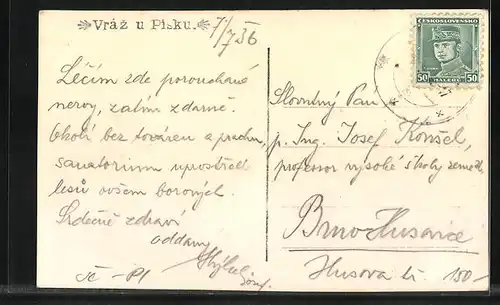 Vráž u Písku.
7/7 36
Léčím zde porouchané
nervy, zatím zdárně.
Okolí bez továren a prachu,
sanatorium uprostřed
lesů ovšem borových.
Srdečně zdraví
oddaný
ČESKOSLOVENSKO
50 HALÉŘŮ 50
Slovutný Pan
p. Ing. Josef Konšel,
profesor vysoké školy zeměd.
Brno-Husovice
Husova tř. 150-